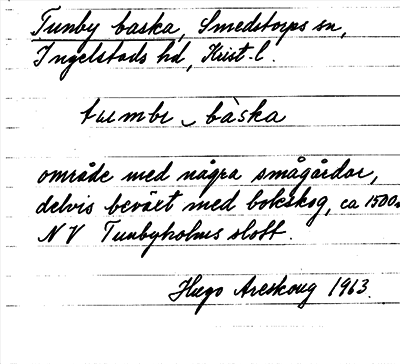 Tunby baska, Smedstorps sn,
Ingelstads hd, Krist. l.
tumbı ‿ bàska
område med några smågårdar,
delvis beväxt med bokskog, ca 1500 m
NV Tunbyholms slott.
Hugo Areskoug 1963.